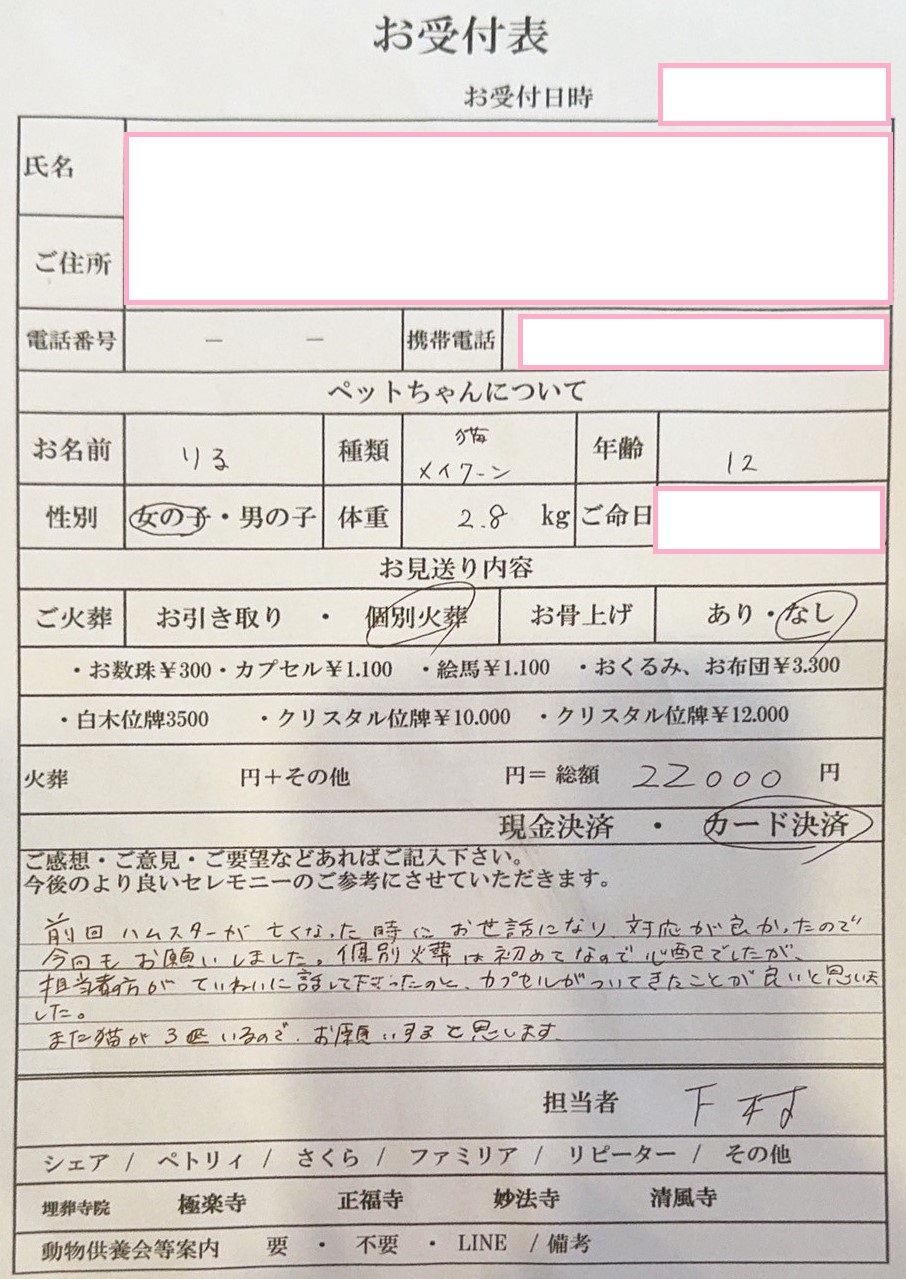 お受付表
お受付日時
氏名
ご住所
電話番号 － － 携帯電話
ペットちゃんについて
お名前 りる 種類 猫 メイクーン 年齢 12
性別 女の子・男の子 体重 2.8 kg ご命日
お見送り内容
ご火葬 お引き取り ・ 個別火葬 お骨上げ あり・なし
・お数珠￥300・カプセル￥1.100 ・絵馬￥1.100 ・おくるみ、お布団￥3.300
・白木位牌3500 ・クリスタル位牌￥10.000 ・クリスタル位牌￥12.000
火葬 円＋その他 円＝ 総額 22000 円
現金決済 ・ カード決済
ご感想・ご意見・ご要望などあればご記入下さい。
今後のより良いセレモニーのご参考にさせていただきます。
前回ハムスターが亡くなった時にお世話になり、対応が良かったので
今回もお願いしました。個別火葬は初めてなので心配でしたが、
担当者の方がていねいに話して下さったのと、カプセルがついてきたことが良いと思いま
した。
まだ猫が3匹いるので、お願いすると思います。
担当者 下村
シェア / ペトリィ / さくら / ファミリア / リピーター / その他
埋葬寺院 極楽寺 正福寺 妙法寺 清風寺
動物供養会等案内 要 ・ 不要 ・ LINE / 備考